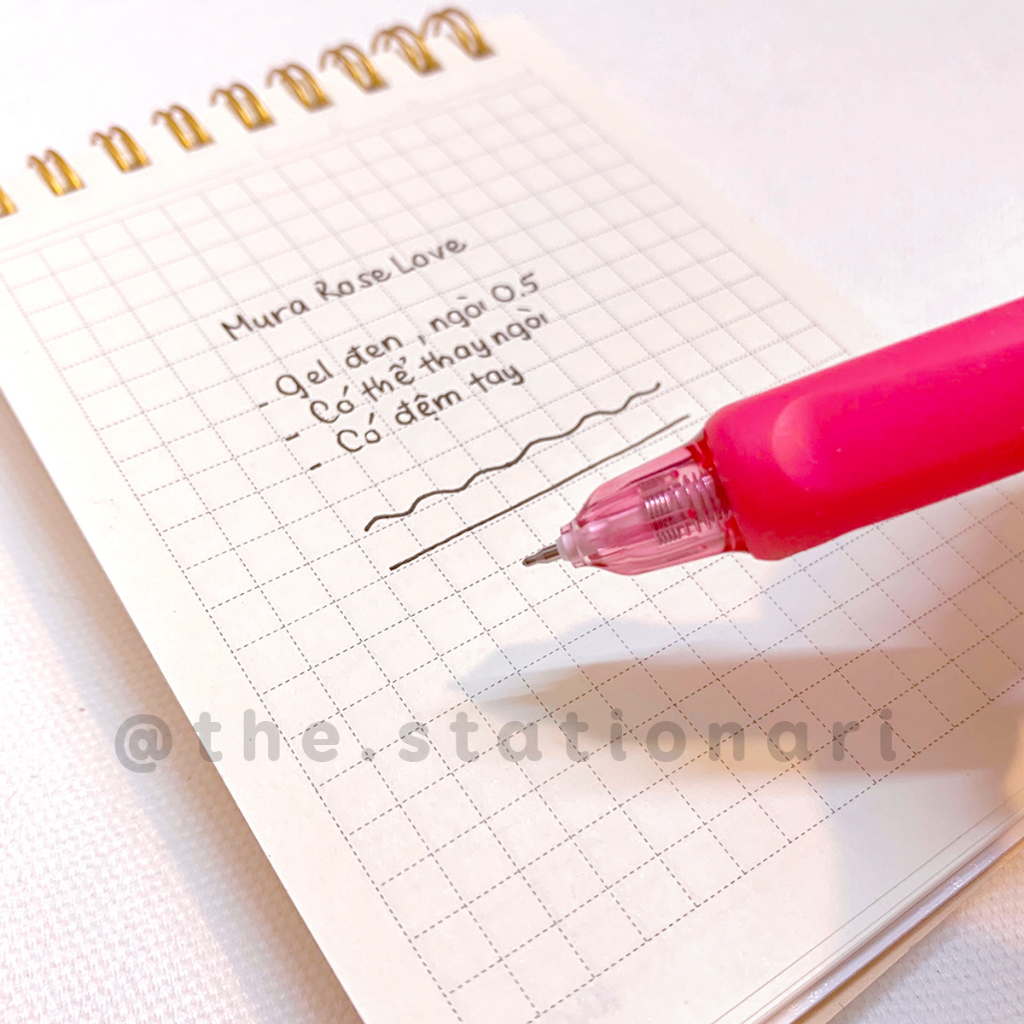 Mura Rose Love
- Gel đen, ngòi 0.5
- Có thể thay ngòi
- Có đệm tay
@the.stationari